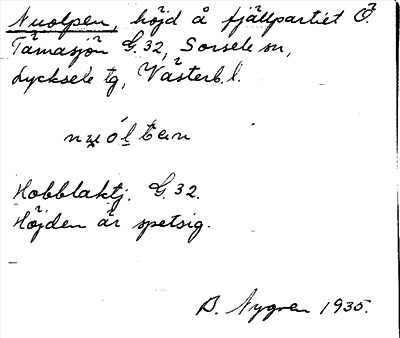 Nuolpen, höjd å fjällpartiet Ö.
Tämasjön G.32, Sorsele sn,
Lycksele tg, Västerb.l.
nu̯ólben
Hobblaktj. G.32.
Höjden är spetsig.
B. Nygren 1935.